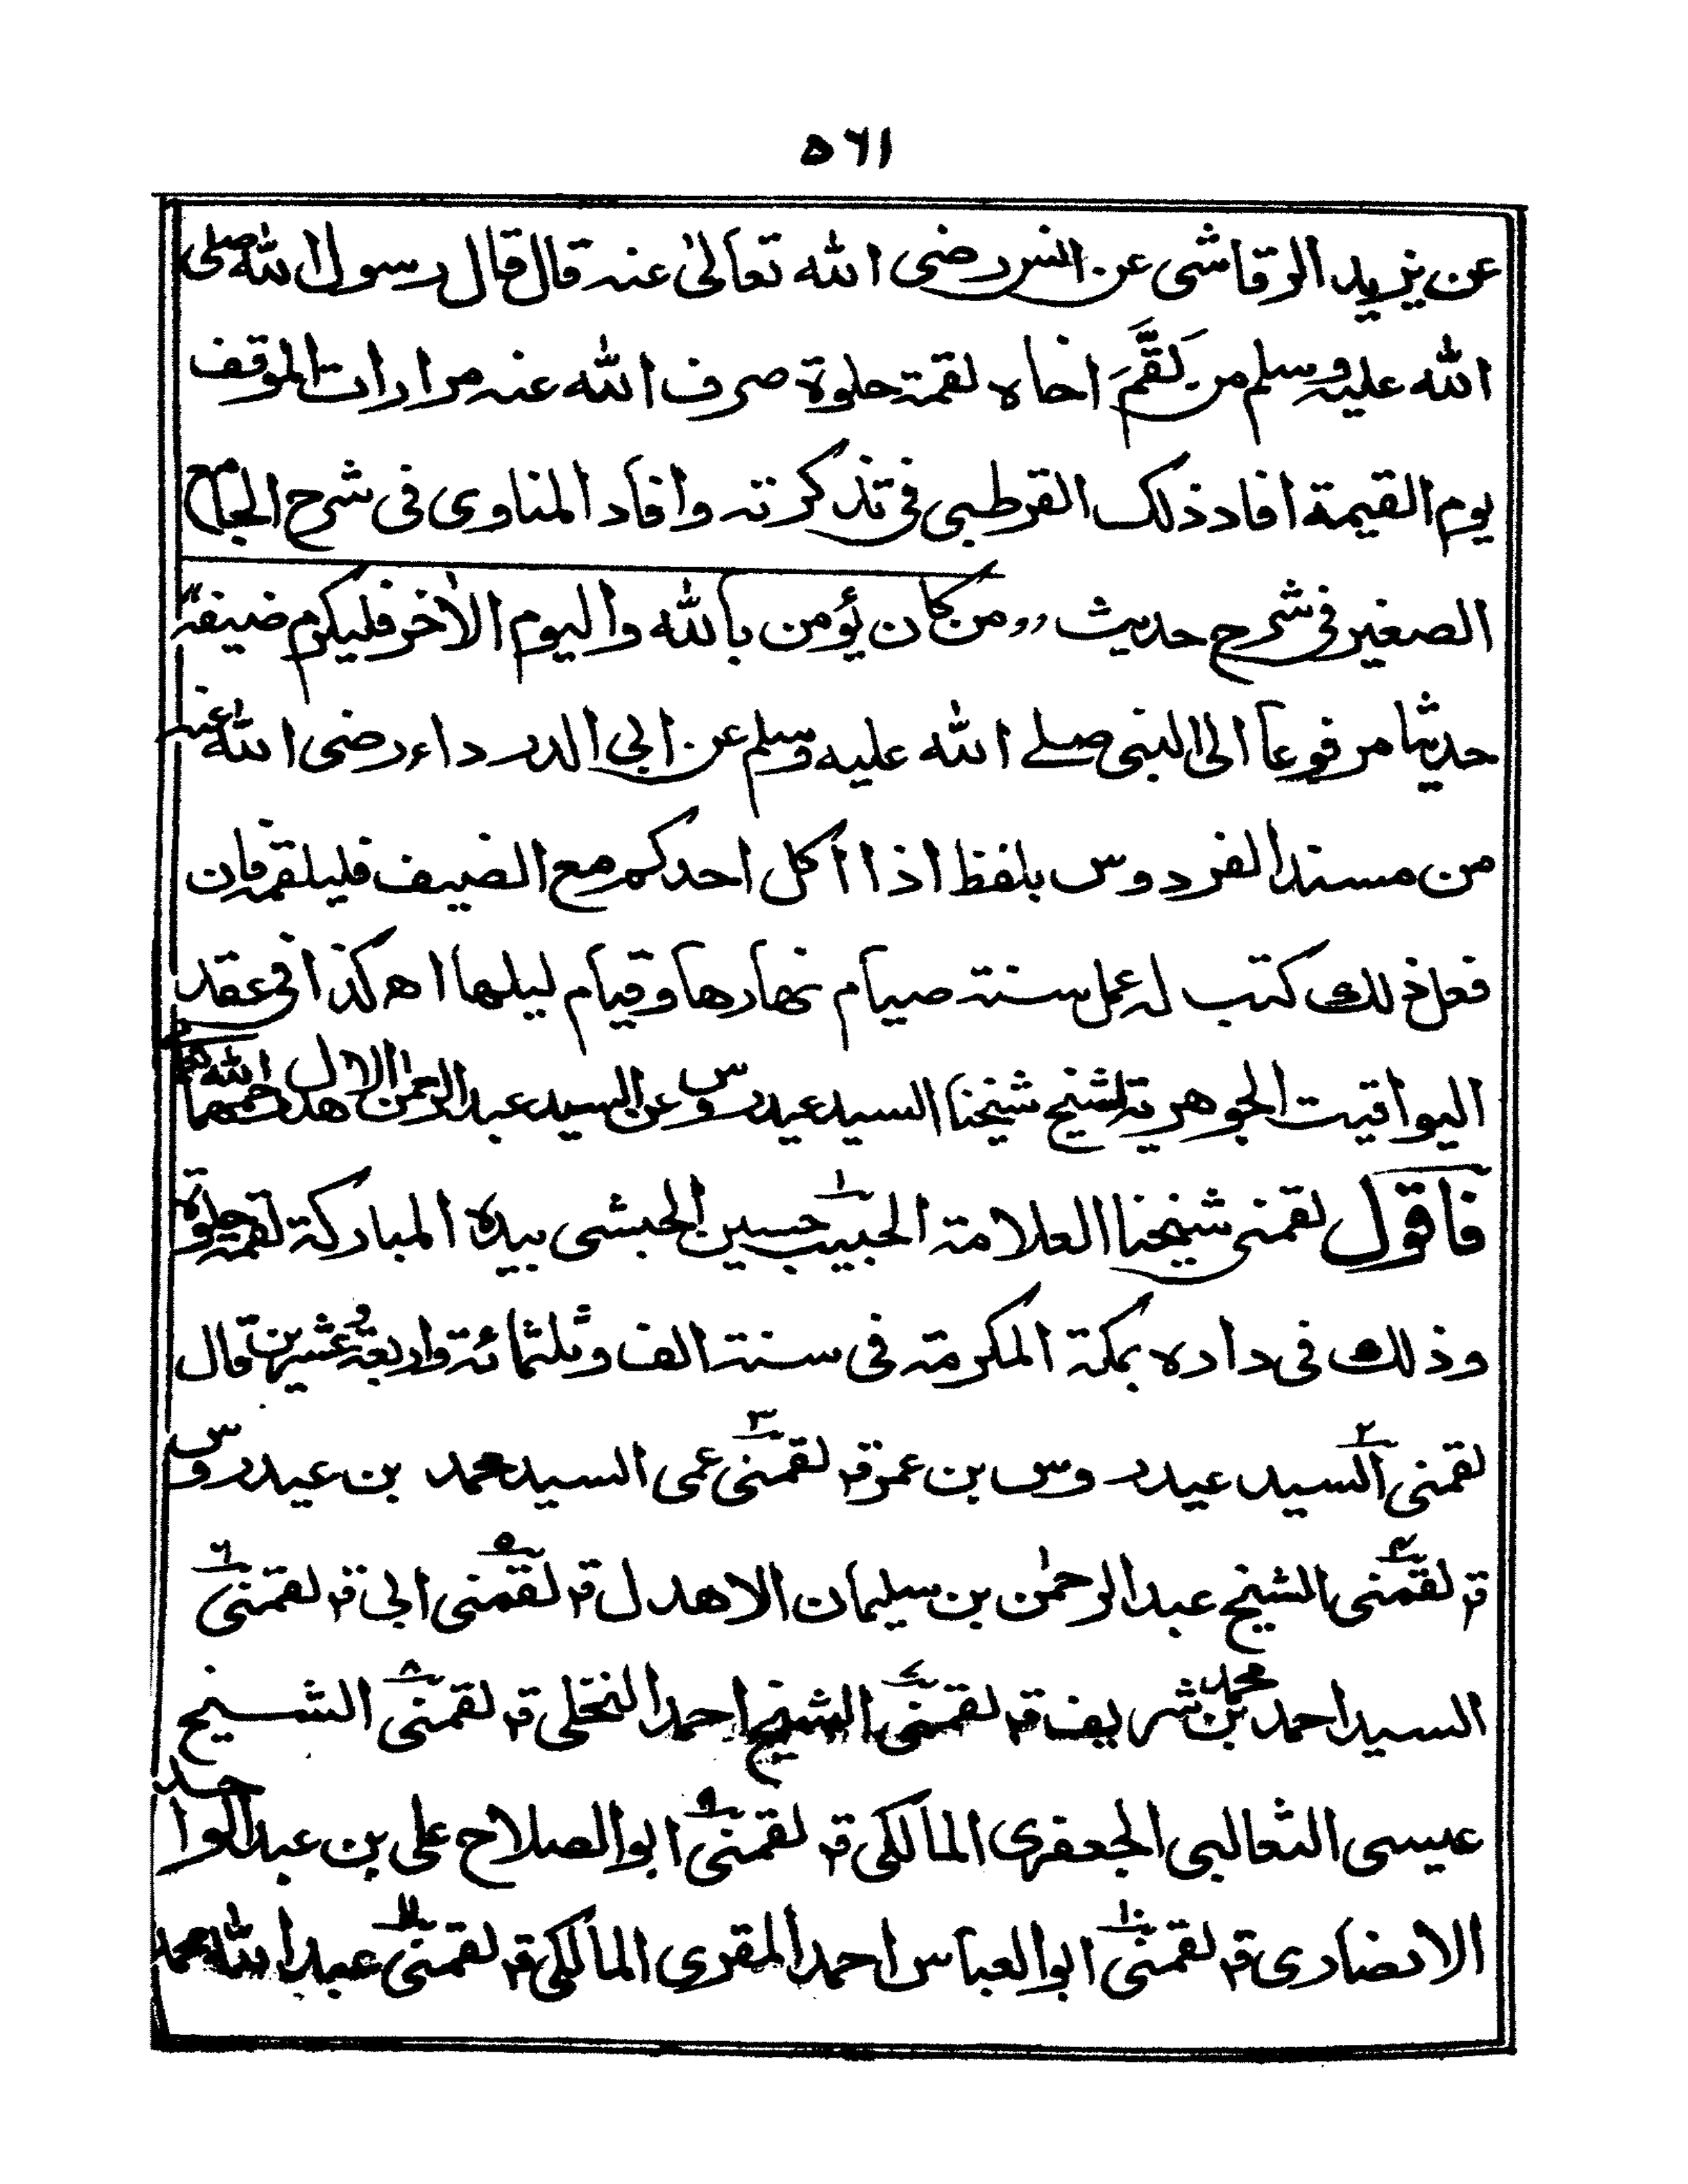 ٥٦١
عن يزيد الرقاشى عن انس رضى الله تعالىٰ عنه قال قال رسول الله صلى
الله عليه وسلم من لَقَّمَ اخاه لقمة حلوة صرف الله عنه مرارات الموقف
يوم القيمة افاد ذلك القرطبى فى تذكرته وافاد المناوى فى شرح الجامع
الصغير فى شرح حديث ,,من كان يؤمن بالله واليوم الاٰخر فليكرم ضيفه"
حديثا مرفوعاً الى النبى صلى الله عليه وسلم عن ابى الدرداء رضى الله عنه
من مسند الفردوس بلفظ اذا اكل احدكم مع الضيف فليلقمه فان
فعل ذلك كتب له عمل سنة صيام نهارها وقيام ليلها اه كذا فى عقد
اليواقيت الجوهرية لشيخ شيخنا السيد عيدروس عن السيد عبد الرحمٰن الاهدل رحمهما الله
فاقول لقمنى شيخنا العلامة الحبيب ١ حسين الحبشى بيده المباركة لقمة حلوة
وذلك فى داره بمكة المكرمة فى سنة الف وثلثمائة واربعة وعشرين قال
لقمنى ٢ السيد عيدروس بن عمر قم لقمنى ٣ عمى السيد محمد بن عيدروس
قم لقمنى ٤ الشيخ عبد الرحمٰن بن سليمان الاهدل قم لقمنى ٥ ابى قم لقمنى ٦
السيد احمد بن محمد شريف قم لقمنى ٧ الشيخ احمد النخلى قم لقمنى ٨ الشيخ
عيسى الثعالبى الجعفرى المالكى قم لقمنى ٩ ابو الصلاح على بن عبد الواحد
الانصارى قم لقمنى ١٠ ابو العباس احمد المقرى المالكى قم لقمنى ١١ عبد الله محمد